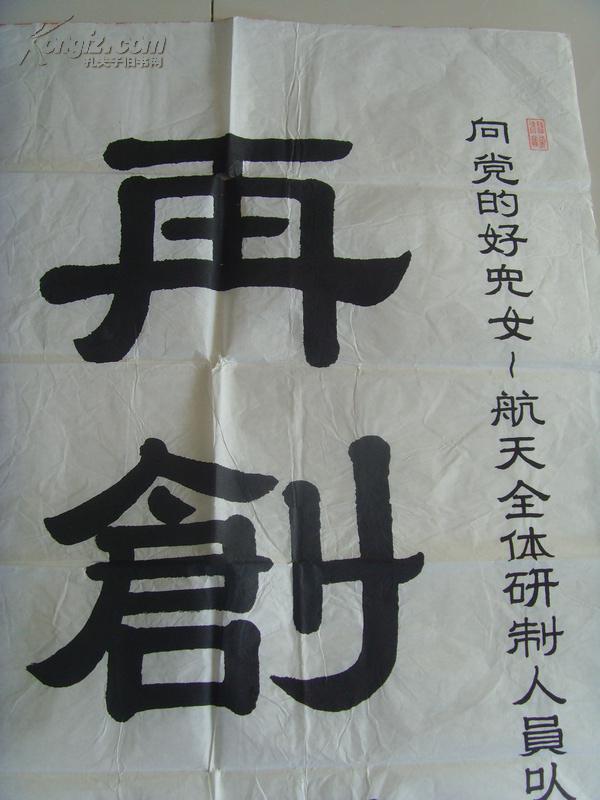 Kongfz.com
孔夫子旧书网
向党的好児女~航天全体研制人員
再創